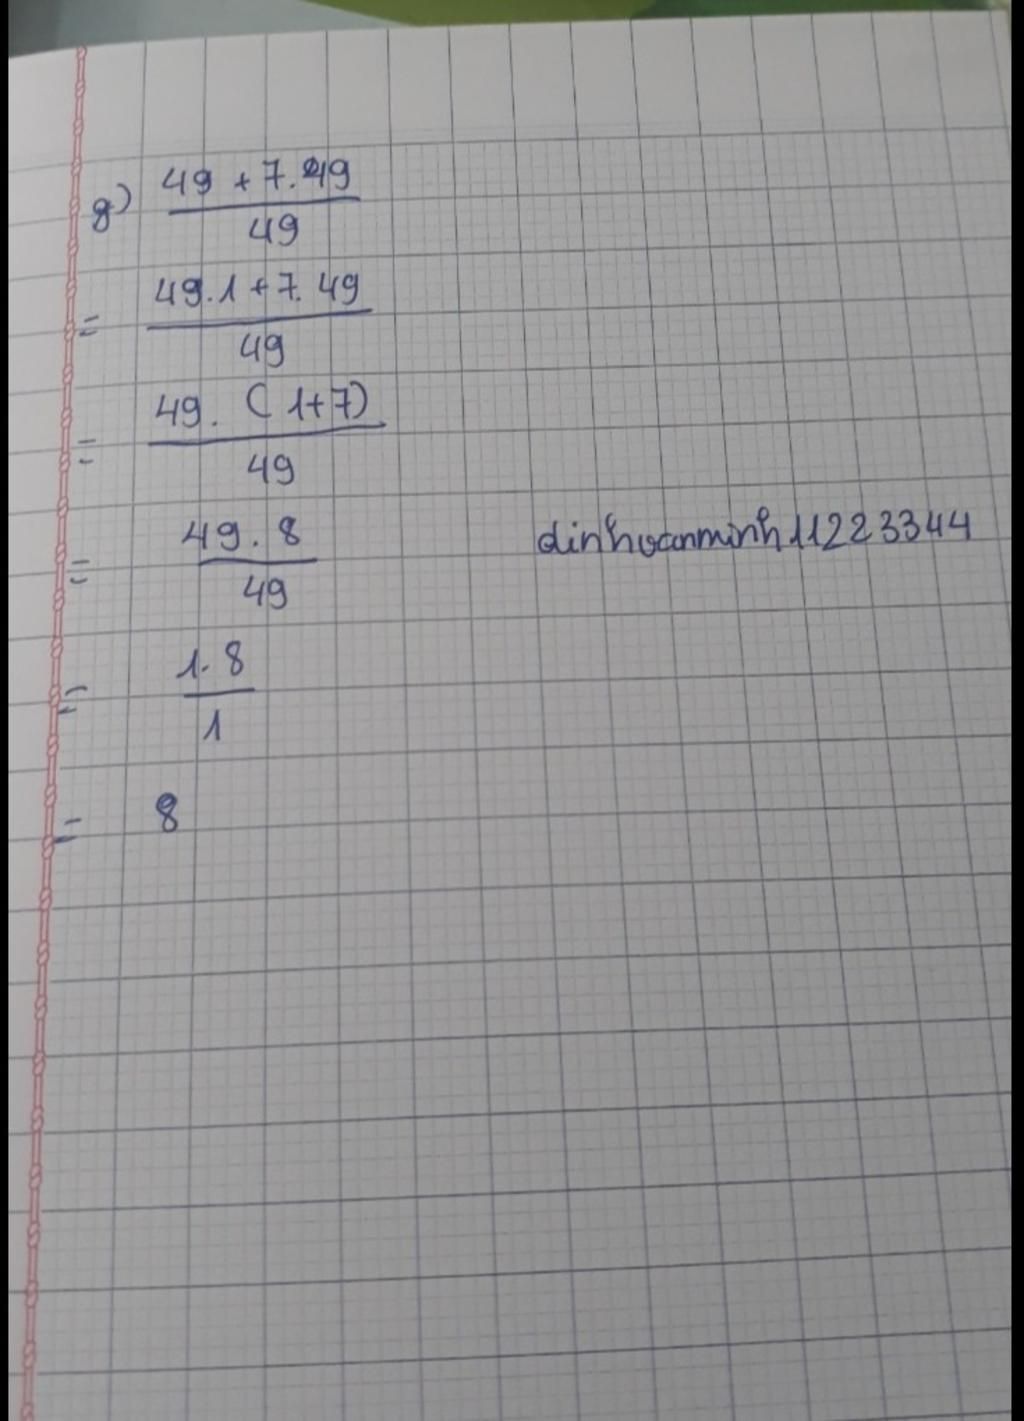 g) 49 + 7.49
49
= 49.1 + 7.49
49
= 49. (1+7)
49
= 49.8
49
dinhvanminh11223344
= 1.8
1
= 8